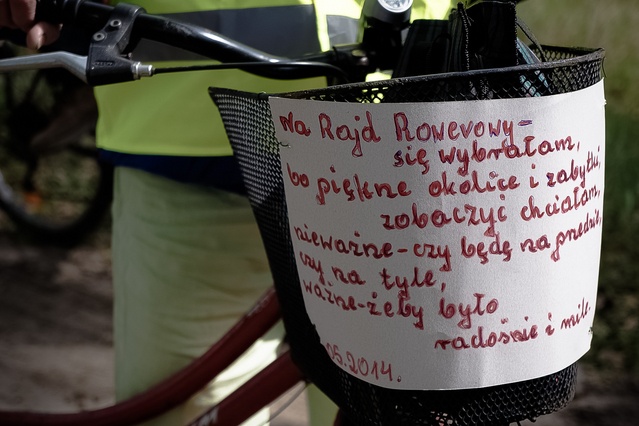 Na Rajd Rowerowy-
się wybrałam,
bo piękne okolice i zabytki,
zobaczyć chciałam,
nieważne-czy będę na przedzie,
czy na tyle,
ważne-żeby było
radośnie i mile.
05.2014.